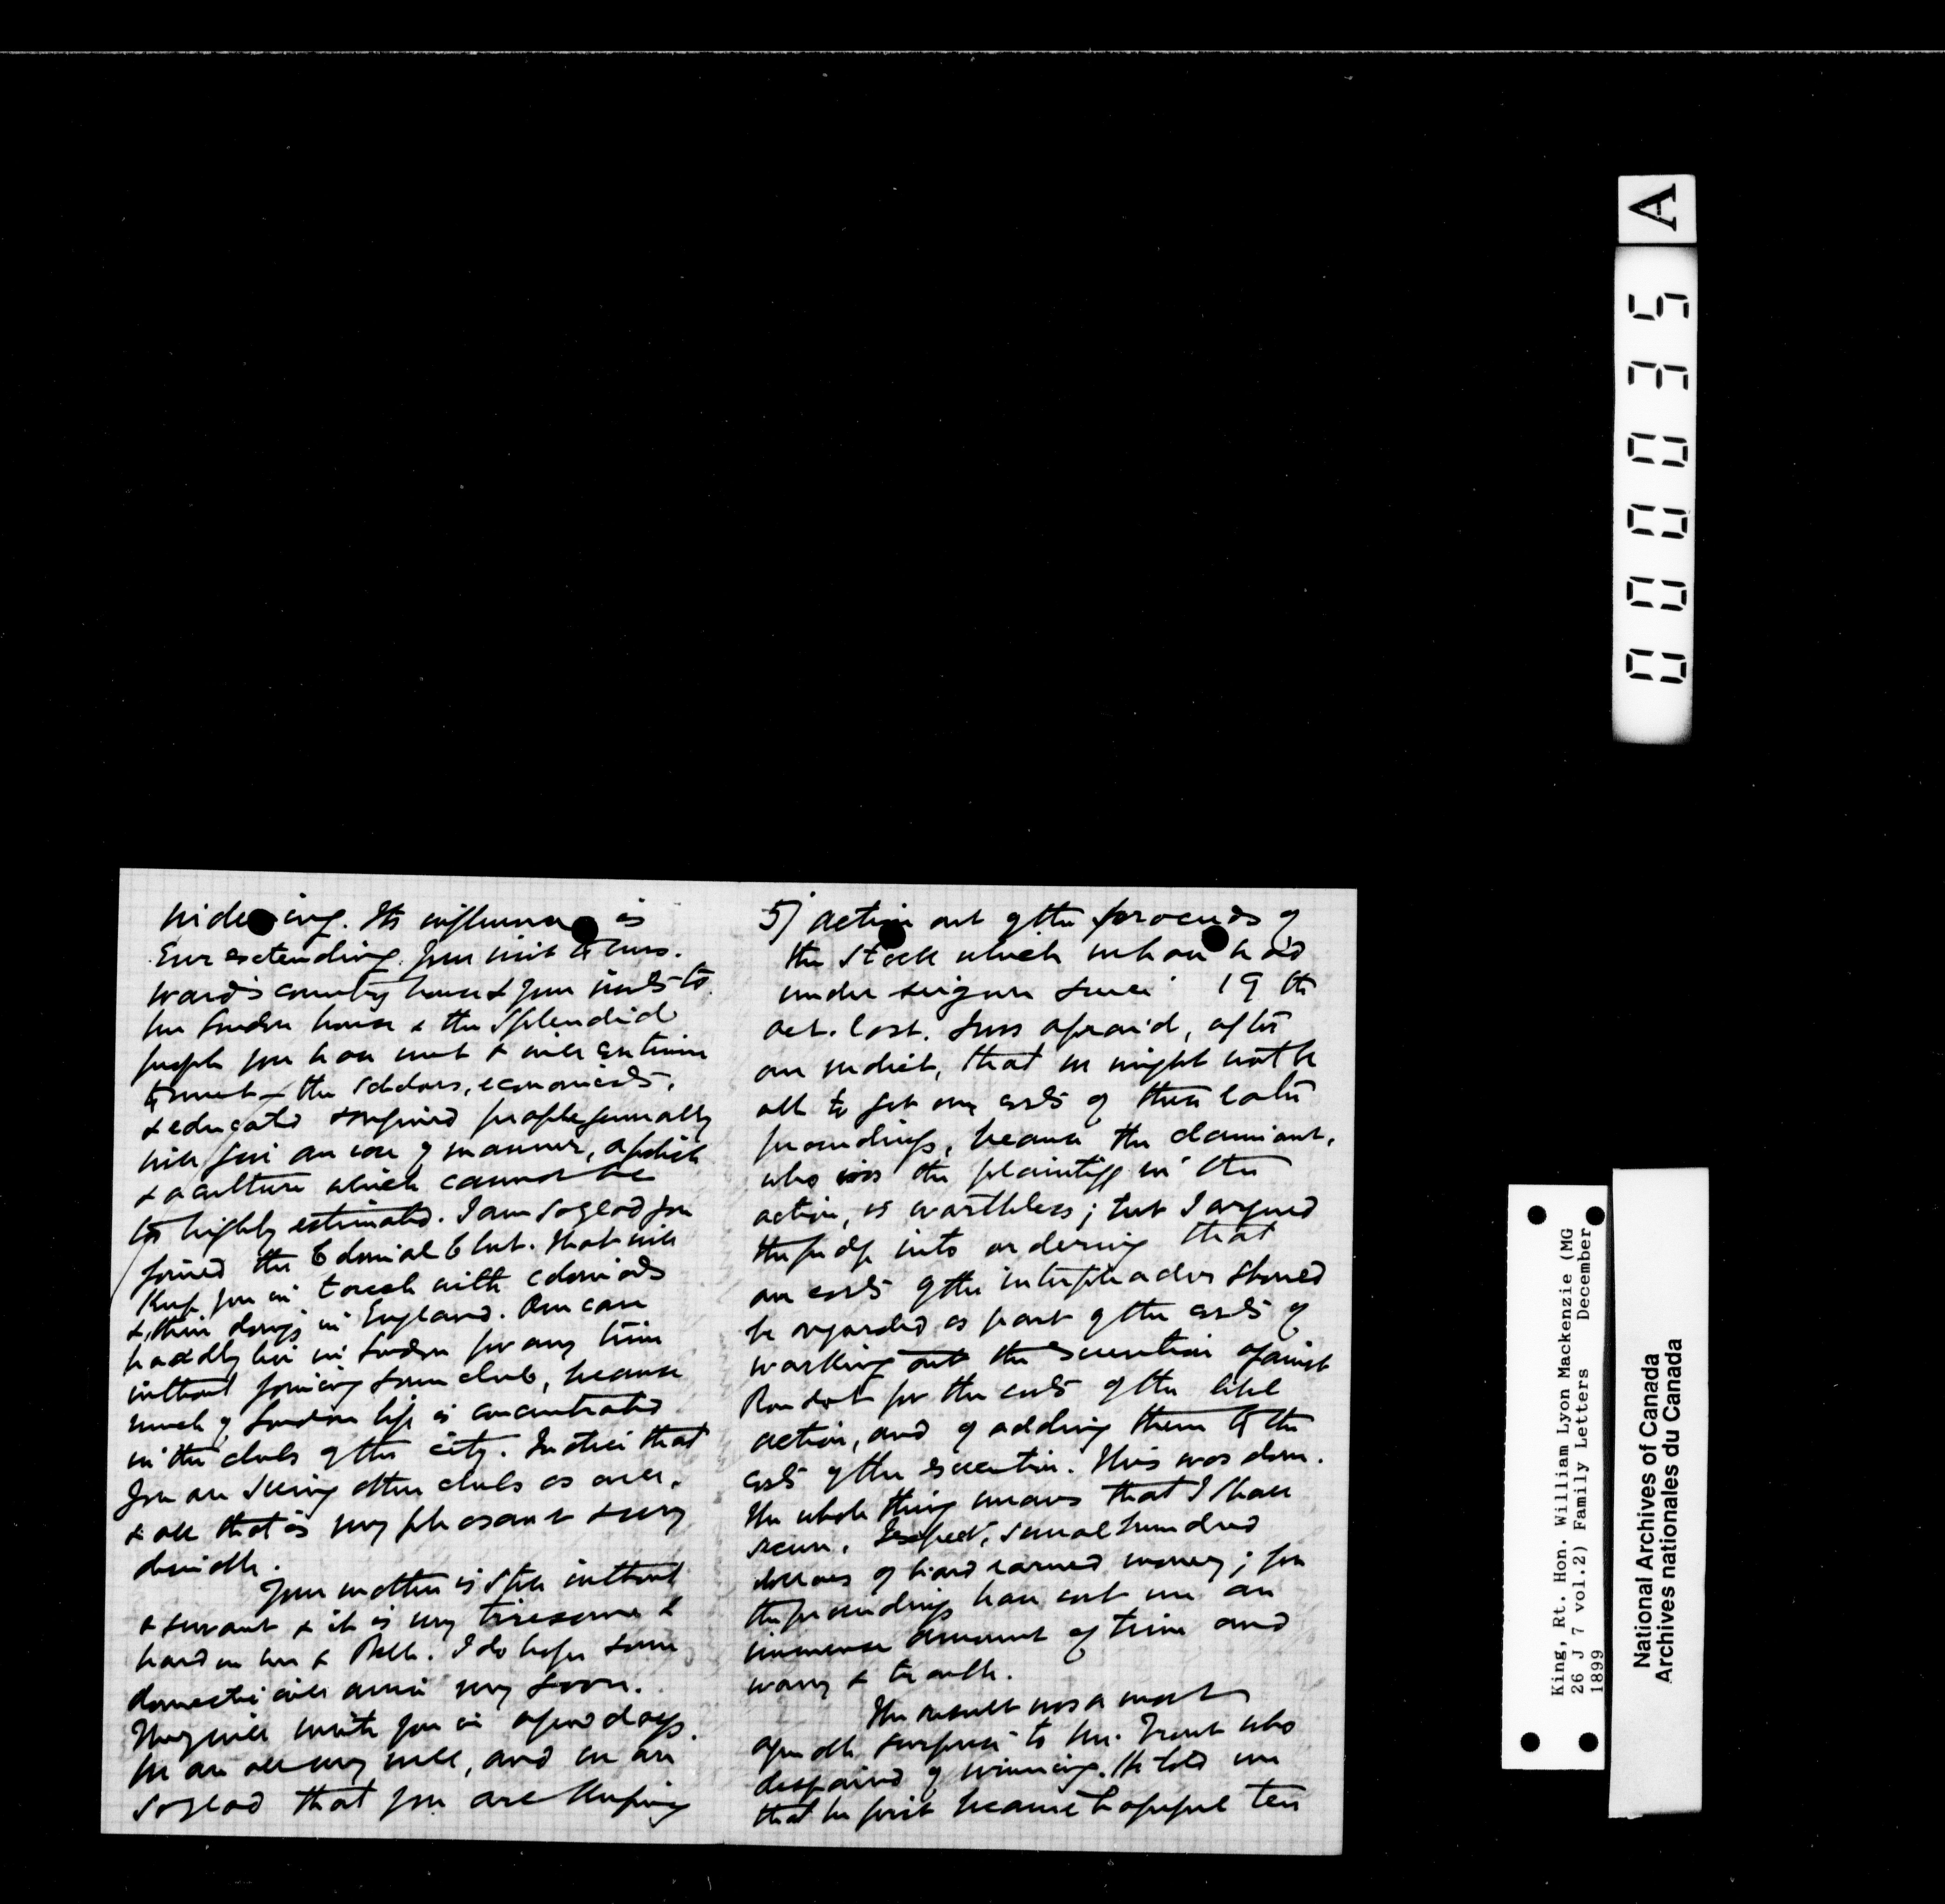 widening. Its influence is
ever extending. Your visit to Mrs.
Ward's country house & your visits to
her London house & the splendid
people you have met & will continue
to meet - the scholars, economists,
& educated & refined people generally
will give an ease of manner, a polish
& a culture which cannot be
too highly estimated. I am so glad you
joined the Colonial Club. That will
keep you in touch with colonials
& their doings in England. One can
hardly live in London for any time
without joining some club, because
much of London life is concentrated
in the clubs of the city. I notice that
you are seeing other clubs as well,
& all that is very pleasant & very
desirable.
Your mother is still without
a servant & it is very tiresome &
hard on her & Bell. I do hope some
domestic will arrive very soon.
They will write you in a few days.
We are all very well, and we are
so glad that you are keeping
5) action out of the proceeds of
the stock which we have had
under seizure since 19th
Oct. last. I was afraid, after
our verdict, that we might not be
able to get our costs of these later
proceedings, because the claimant,
who was the plaintiff in the
action, is worthless; but I argued
the judge into ordering that
our costs of the interpleader should
be regarded as part of the costs of
working out the execution against
Rondot for the costs of the libel
action, and of adding them to the
costs of the execution. This was done.
The whole thing means that I shall
secure, I expect, several hundred
dollars of hard earned money; for
the proceedings have cost me an
immense amount of time and
worry & trouble.
The result was a most
agreeable surprise to Mr. Trent who
despaired of winning. He told me
that he first became hopeful ten
A
000035
King, Rt. Hon. William Lyon Mackenzie (MG
26 J 7 vol.2) Family Letters December
1899
National Archives of Canada
Archives nationales du Canada